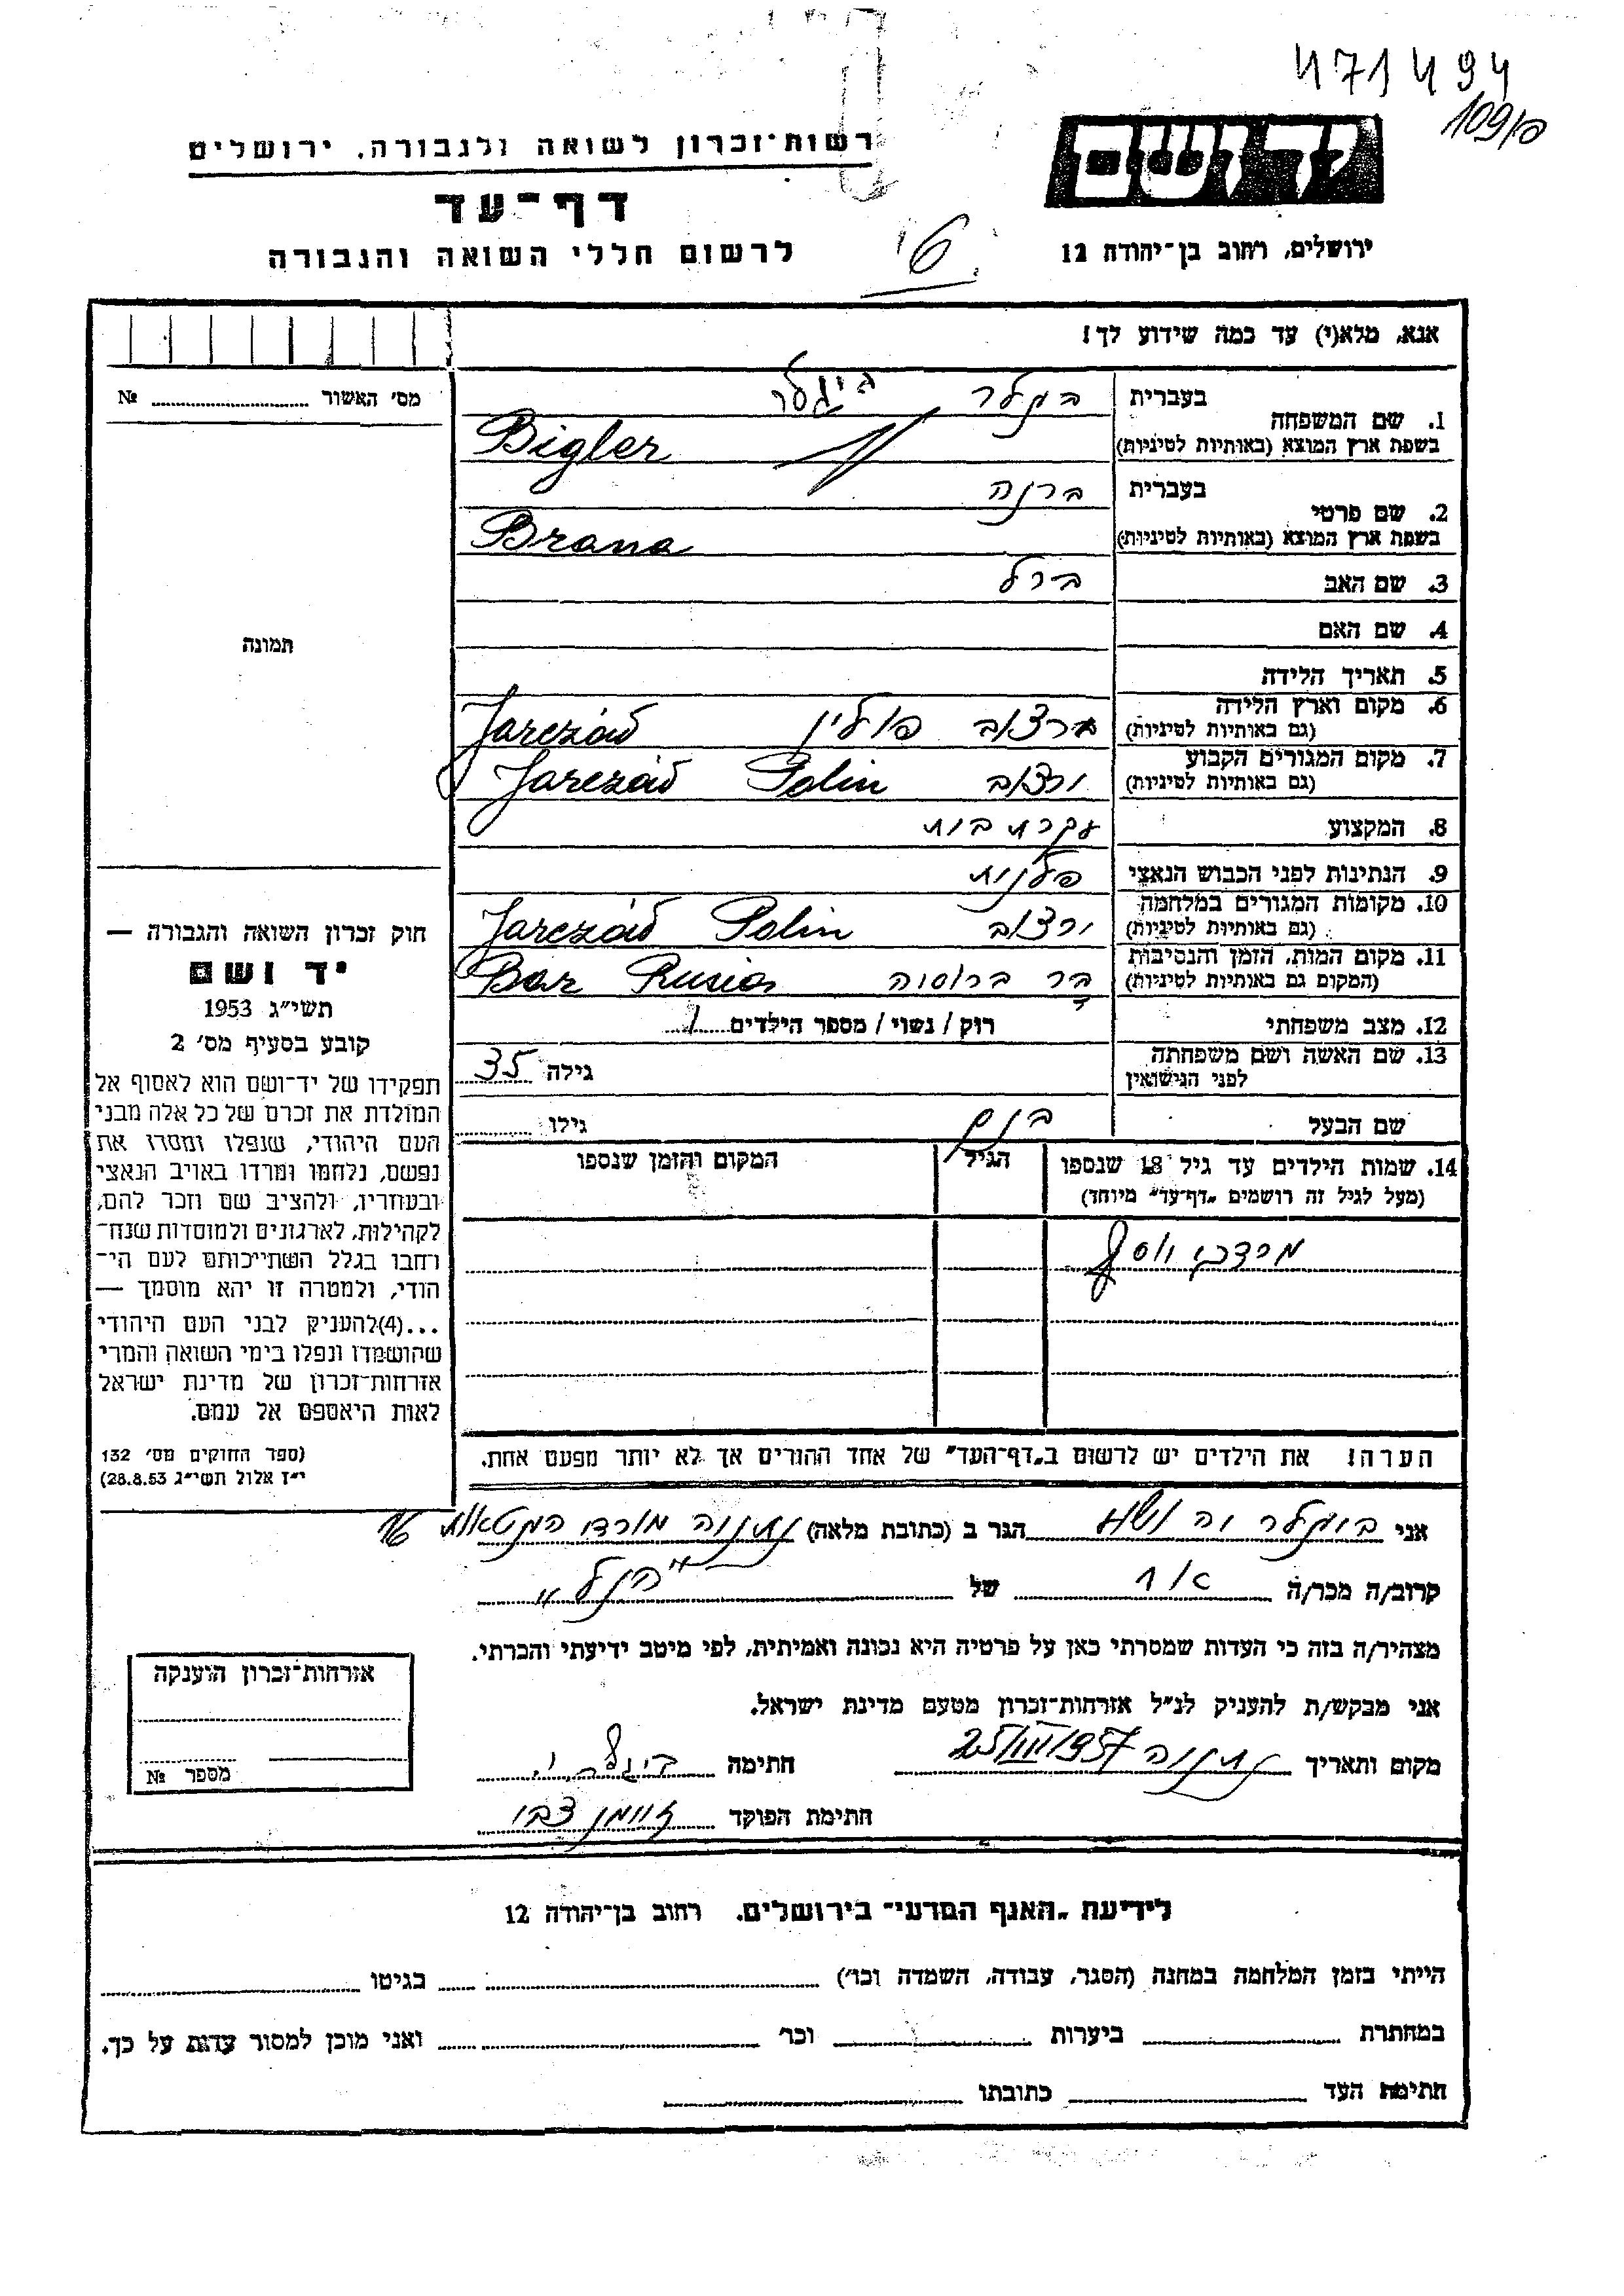 471494
109/
רשות־זכרון לשואה ולגבורה, ירושלים
יד ושם
דף־עד
לרשום חללי השואה והגבורה
ירושלים, רחוב בן־יהודה 12
16
אנא, מלא(י) עד כמה שידוע לך!
מס׳ האשור № 
1. שם המשפחה בעברית ביגלר
בשפת ארץ המוצא (באותיות לטיניות) Bigler
2. שם פרטי בעברית ברנה
בשפת ארץ המוצא (באותיות לטיניות) Brana
3. שם האב ברל
4. שם האם
5. תאריך הלידה
6. מקום וארץ הלידה (גם באותיות לטיניות) פולין Jarczów
7. מקום המגורים הקבוע (גם באותיות לטיניות) ירצוב Polin Jarczów
8. המקצוע עקרת בית
9. הנתינות לפני הכבוש הנאצי פלנית
10. מקומות המגורים במלחמה (גם באותיות לטיניות) ירצוב Polin Jarczów
11. מקום המות, הזמן והנסיבות (המקום גם באותיות לטיניות) בר ברוסיה Bar Rusia
12. מצב משפחתי רוק / נשוי / מספר הילדים 1
13. שם האשה ושם משפחתה לפני הנישואין גילה 35
שם הבעל גילו
14. שמות הילדים עד גיל 18 שנספו הגיל המקום והזמן שנספו
(מעל לגיל זה רושמים „דף־עד״ מיוחד)
מרדכי יוסף
תמונה
חוק זכרון השואה והגבורה —
יד ושם
תשי״ג 1953
קובע בסעיף מס׳ 2
תפקידו של יד־ושם הוא לאסוף אל
המולדת את זכרם של כל אלה מבני
העם היהודי, שנפלו ומסרו את
נפשם, נלחמו ומרדו באויב הנאצי
ובעוזריו, ולהציב שם וזכר להם,
לקהילות, לארגונים ולמוסדות שנח־
רחבו בגלל השתייכותם לעם הי־
הודי, ולמטרה זו יהא מוסמך —
...(4)להעניק לבני העם היהודי
שהושמדו ונפלו בימי השואה והמרי
אזרחות־זכרון של מדינת ישראל
לאות היאספם אל עמם.
(ספר החוקים מס׳ 132
י״ז אלול תשי״ג 28.8.53)
הערה! את הילדים יש לרשום ב„דף־העד״ של אחד ההורים אך לא יותר מפעם אחת.
אני ביגלר יהושע הגר ב (כתובת מלאה) נתניה מורדי הגטאות
קרוב/ה מכר/ה של „הנ״ל״
מצהיר/ה בזה כי העדות שמסרתי כאן על פרטיה היא נכונה ואמיתית, לפי מיטב ידיעתי והכרתי.
אני מבקש/ת להעניק לנ״ל אזרחות־זכרון מטעם מדינת ישראל.
מקום ותאריך נתניה 25/III/1957 חתימה ביגלר י
חתימת הפוקד צבי
אזרחות־זכרון הוענקה
מספר №
לידיעת „האגף המדעי״ בירושלים, רחוב בן־יהודה 12
הייתי בזמן המלחמה במחנה (הסגר, עבודה, השמדה וכו׳) בגיטו
במחתרת ביערות וכו׳ ואני מוכן למסור עדות על כך.
חתימת העד כתובתו